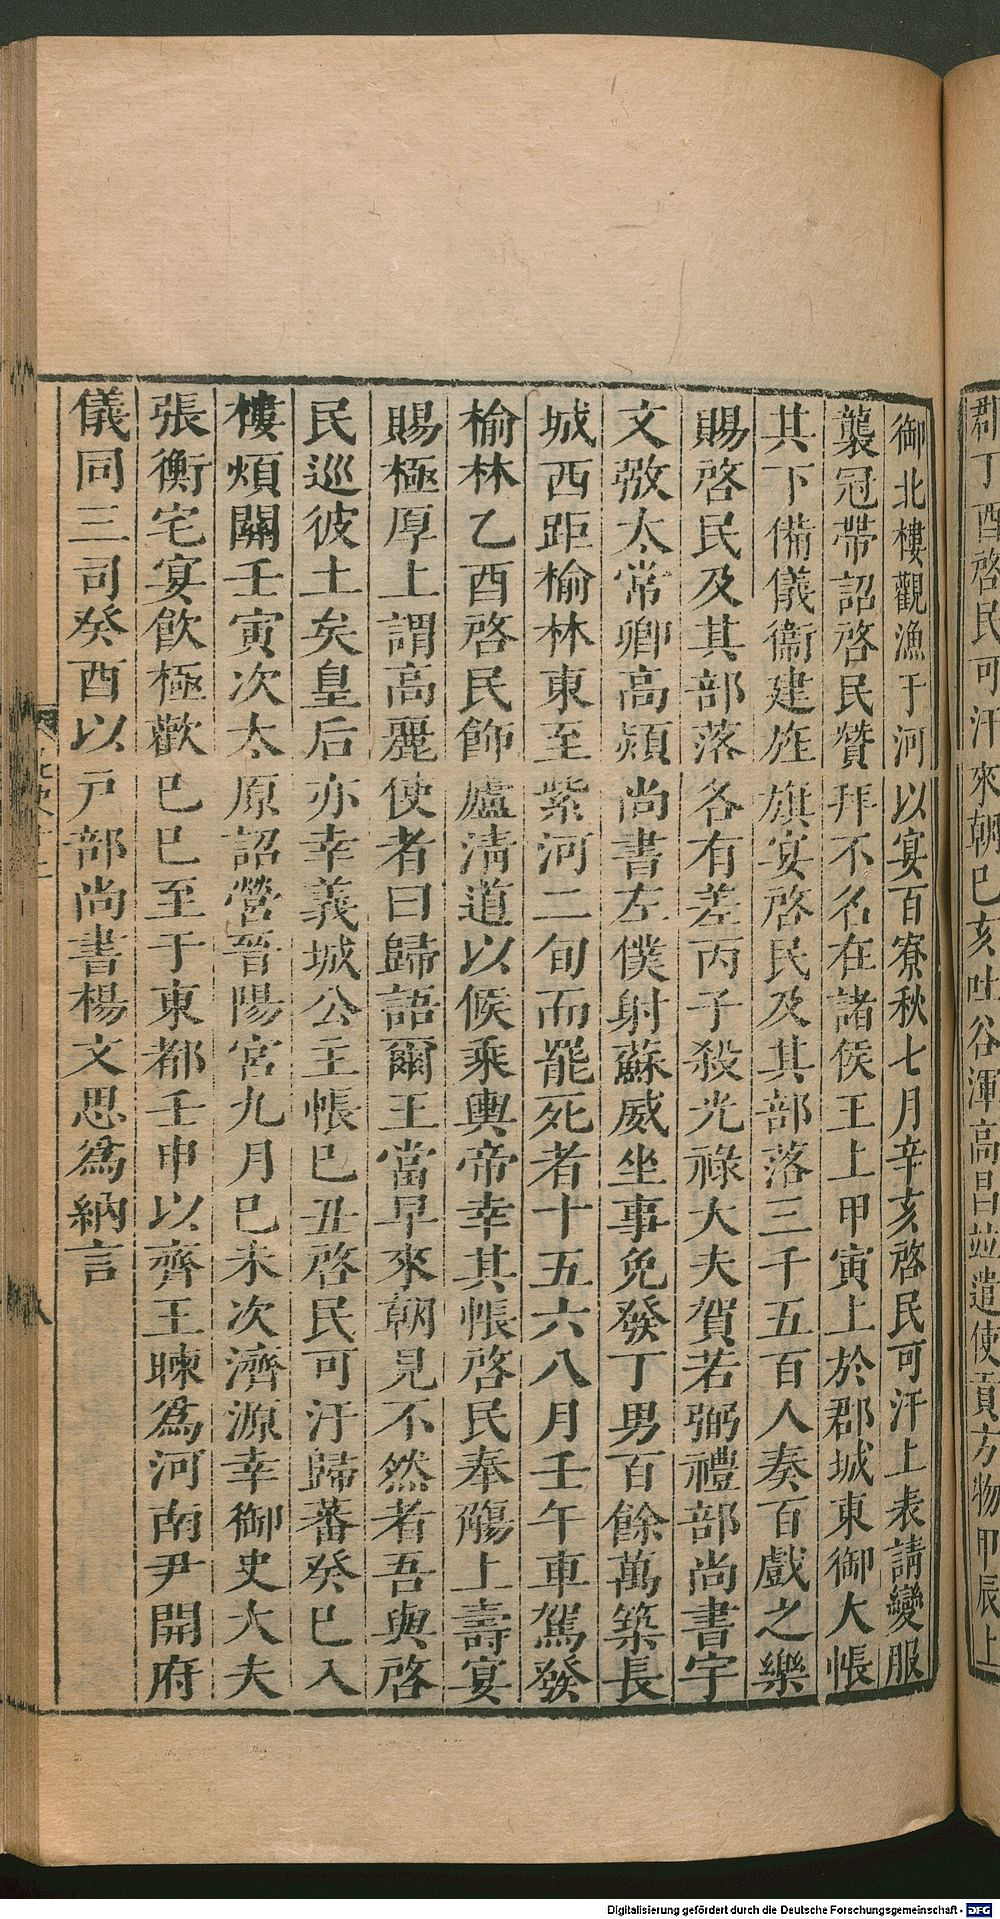 郡丁酉啓民可汗來朝巳亥吐谷渾高昌竝遣使貢方物甲辰上
御北樓觀漁于河以宴百寮秋七月辛亥啓民可汗上表請變服
襲冠帶詔啓民贊拜不名在諸侯王上甲寅上於郡城東御大帳
其下備儀衞建旌旗宴啓民及其部落三千五百人奏百戲之樂
賜啓民及其部落各有差丙子殺光祿大夫賀若弼禮部尚書宇
文㢸太常卿高熲尚書左僕射蘇威坐事免發丁男百餘萬築長
城西距榆林東至紫河二旬而罷死者十五六八月壬午車駕發
榆林乙酉啓民飾廬清道以候乘輿帝幸其帳啓民奉觴上壽宴
賜極厚上謂高麗使者曰歸語爾王當早來朝見不然者吾與啓
民巡彼土矣皇后亦幸義城公主帳巳丑啓民可汗歸蕃癸巳入
樓煩關壬寅次太原詔營晉陽宮九月巳未次濟源幸御史大夫
張衡宅宴飲極歡巳巳至于東都壬申以齊王暕爲河南尹開府
儀同三司癸酉以戶部尚書楊文思爲納言
Digitalisierung gefördert durch die Deutsche Forschungsgemeinschaft - DFG